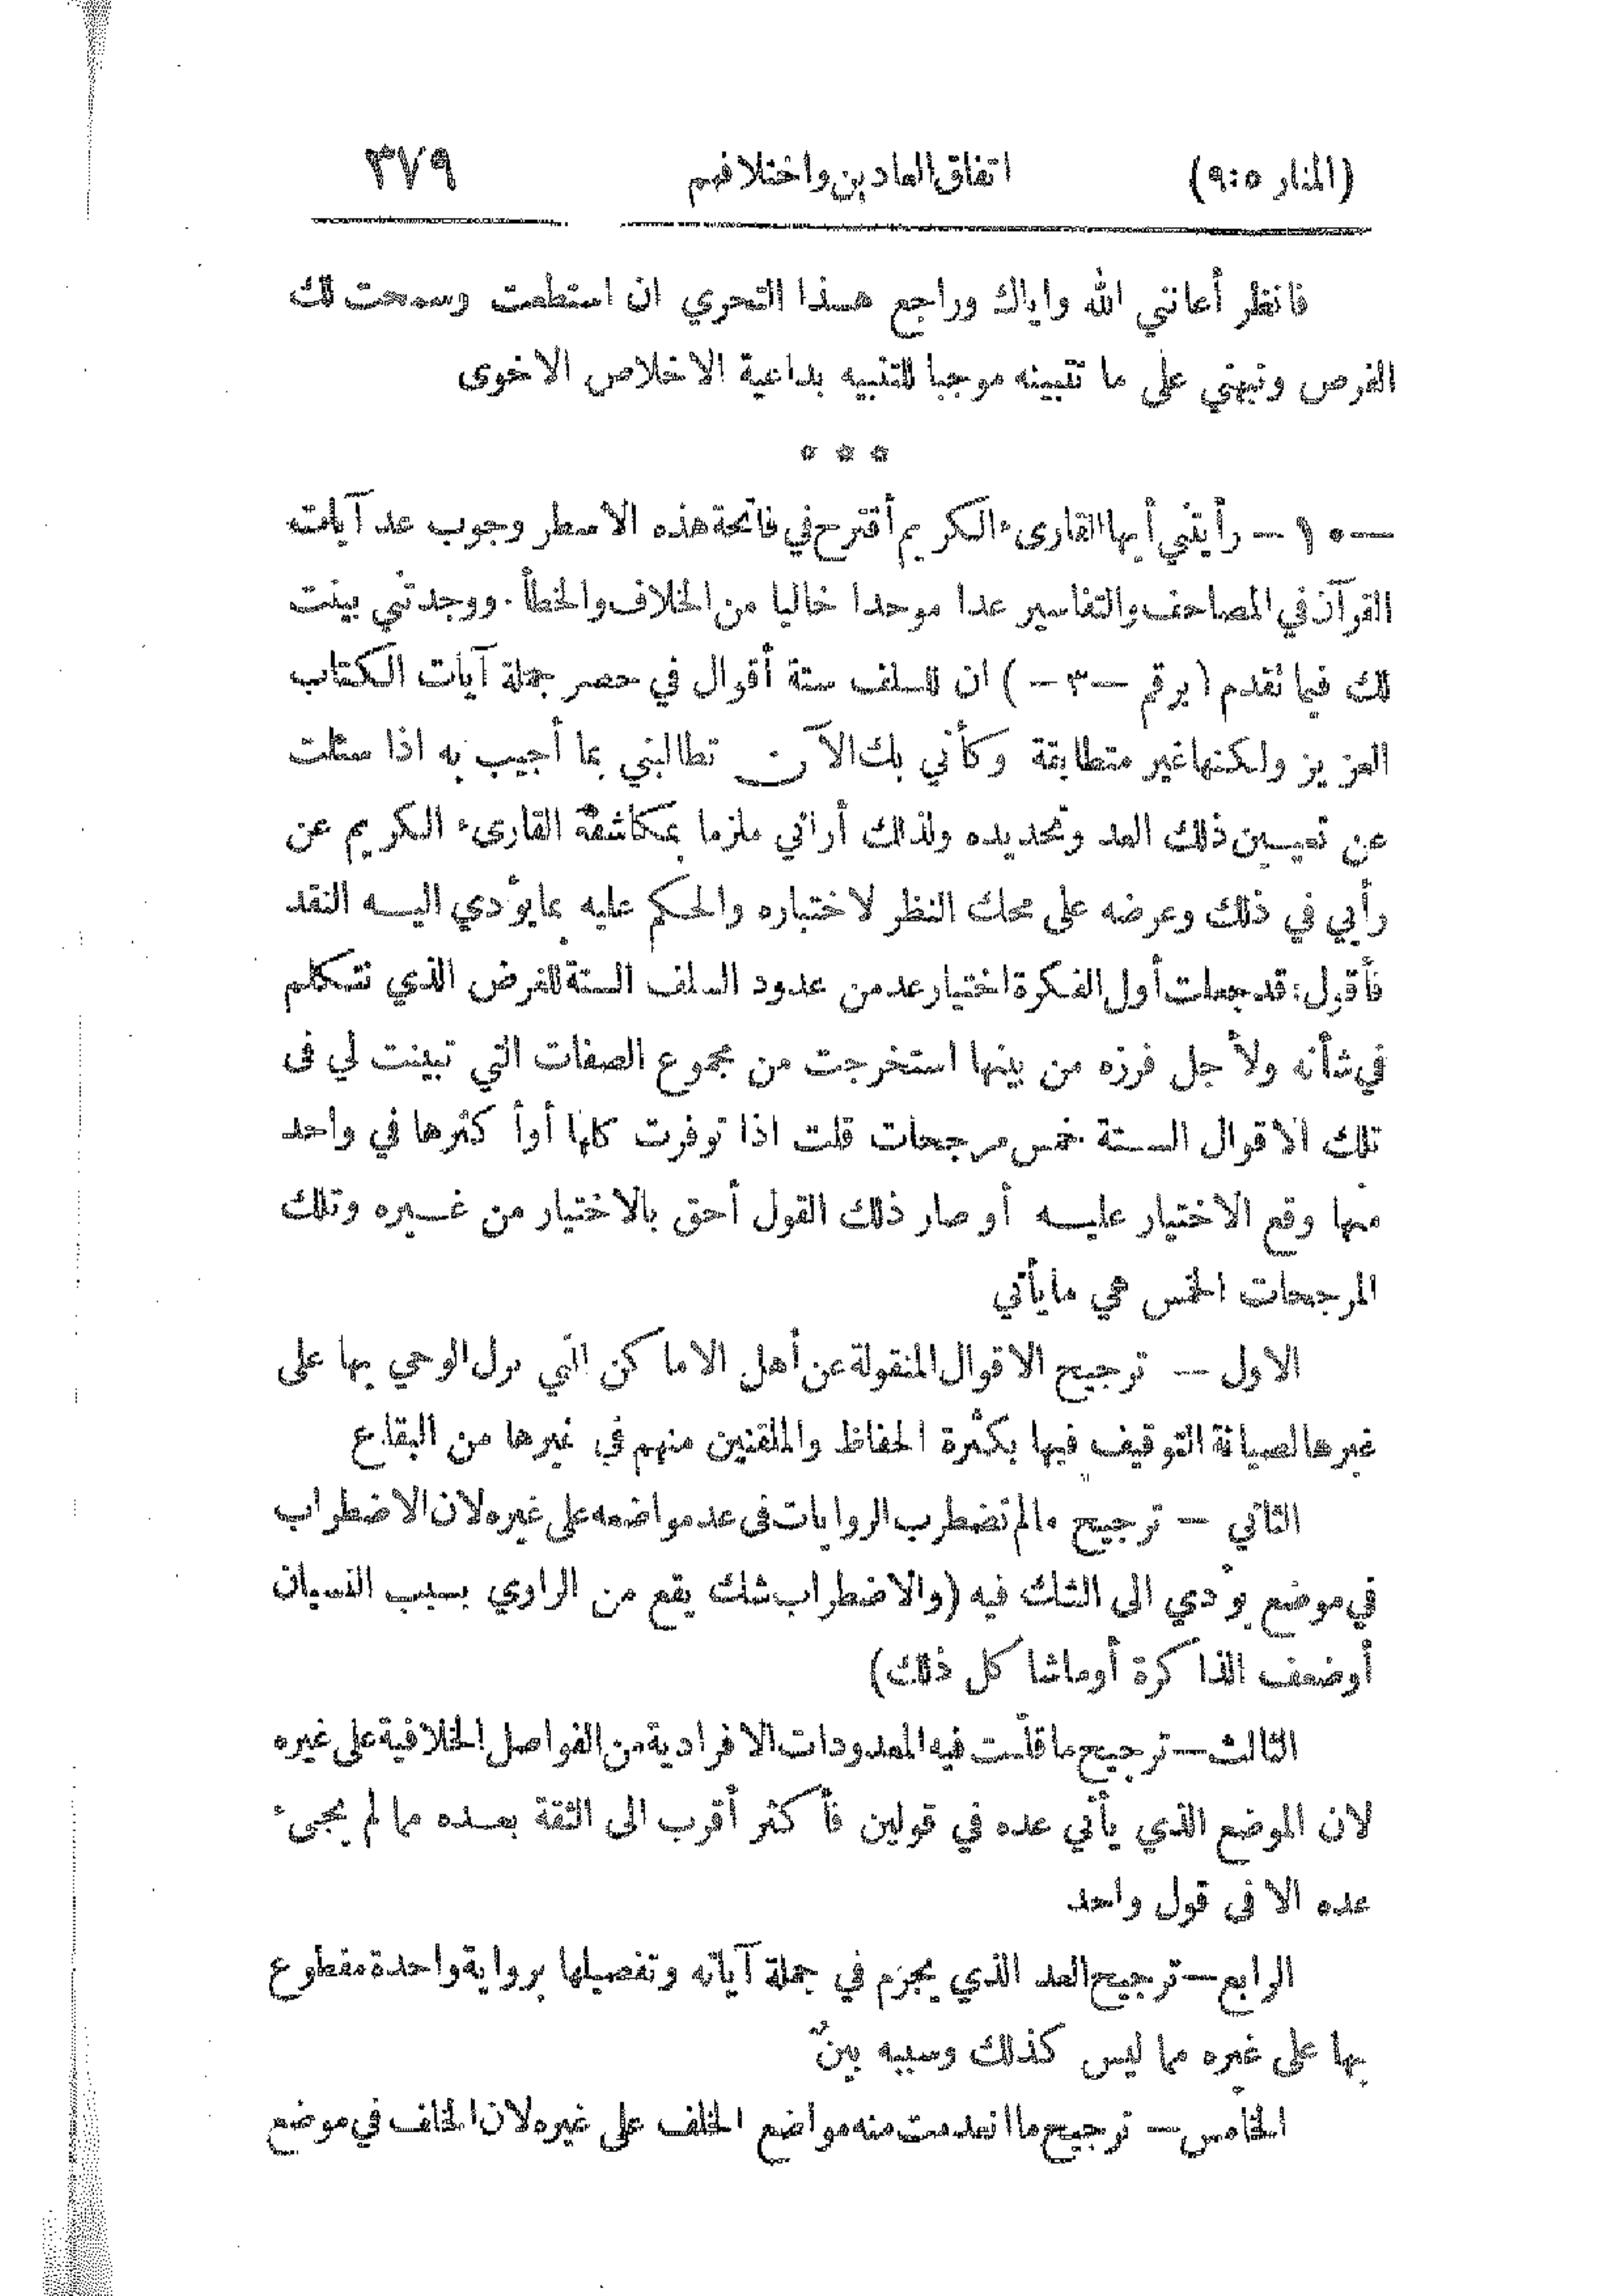 (المنار ٩:٥) اتفاق العادين واختلافهم ٣٧٩
فانظر أعانني الله واياك وراجع هذا التحري ان استطعت وسمحت لك
الفرص ونبهني على ما تتبينه موجبا للتنبيه بداعية الاخلاص الاخوى
* * *
— ١٠ — رأيتني أيها القارىء الكريم أقترح في فاتحة هذه الاسطر وجوب عد آيات
القرآن في المصاحف والتفاسير عدا موحدا خاليا من الخلاف والخطأ. ووجدتني بينت
لك فيما تقدم (برقم —٣—) ان للسلف ستة أقوال في حصر جملة آيات الكتاب
العزيز ولكنها غير متطابقة وكأني بك الآن تطالبني بما أجيب به اذا سئلت
عن تعيين ذلك العد وتحديده ولذلك أراني ملزما بمكاشفة القارىء الكريم عن
رأيي في ذلك وعرضه على محك النظر لاختباره والحكم عليه بما يؤدي اليه النقد
فأقول: قد جعلت أول الفكرة اختيار عد من عدود السلف الستة للغرض الذي نتكلم
في شأنه ولأجل فرزه من بينها استخرجت من مجموع الصفات التي تبينت لي فى
تلك الاقوال الستة خمس مرجحات قلت اذا توفرت كلها أوأكثرها في واحد
منها وقع الاختيار عليه أو صار ذلك القول أحق بالاختيار من غيره وتلك
المرجحات الخمس هي ما يأتي
الاول — ترجيح الاقوال المنقولة عن أهل الاماكن التي نزل الوحي بها على
غيرها لصيانة التوقيف فيها بكثرة الحفاظ والملقنين منهم في غيرها من البقاع
الثاني — ترجيح مالم تضطرب الروايات فى عد مواضعه على غيره لان الاضطراب
في موضع يؤدي الى الشك فيه (والاضطراب شك يقع من الراوي بسبب النسيان
أوضعف الذاكرة أوماشاكل ذلك)
الثالث — ترجيح ما قلّت فيه المعدودات الافرادية من الفواصل الخلافية على غيره
لان الموضع الذي يأتي عده في قولين فأكثر أقرب الى الثقة بعده مما لم يجىء
عده الا فى قول واحد
الرابع — ترجيح العد الذي يجزم في جملة آياته وتفصيلها برواية واحدة مقطوع
بها على غيره مما ليس كذلك وسببه بينٌ
الخامس — ترجيح ما انعدمت منه مواضع الخلف على غيره لان الخلف في موضع